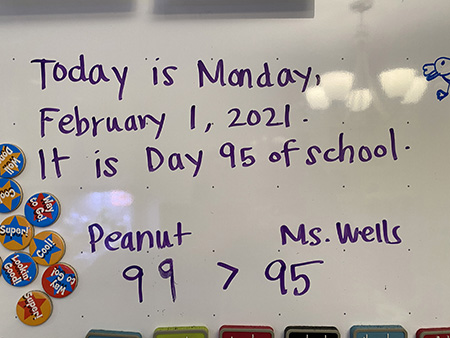 Today is Monday,
February 1, 2021.
It is Day 95 of school.
Peanut Ms. Wells
99 > 95
Way to Go!
Super!
Cool!
Lookin' Good!
Way to Go!
Super!